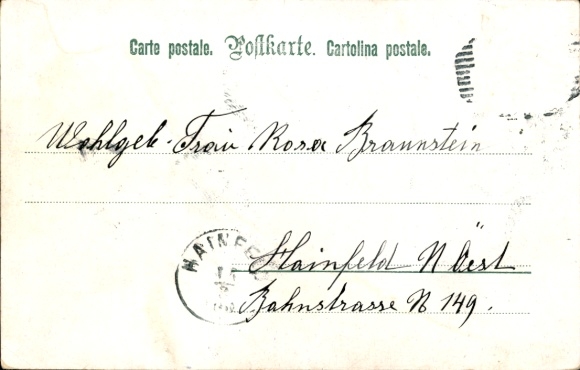 Carte postale. Postkarte. Cartolina postale.
Wohlgeb. Frau Rosa Braunstein
Hainfeld N Öest
Bahnstrasse N 149.
HAINFELD